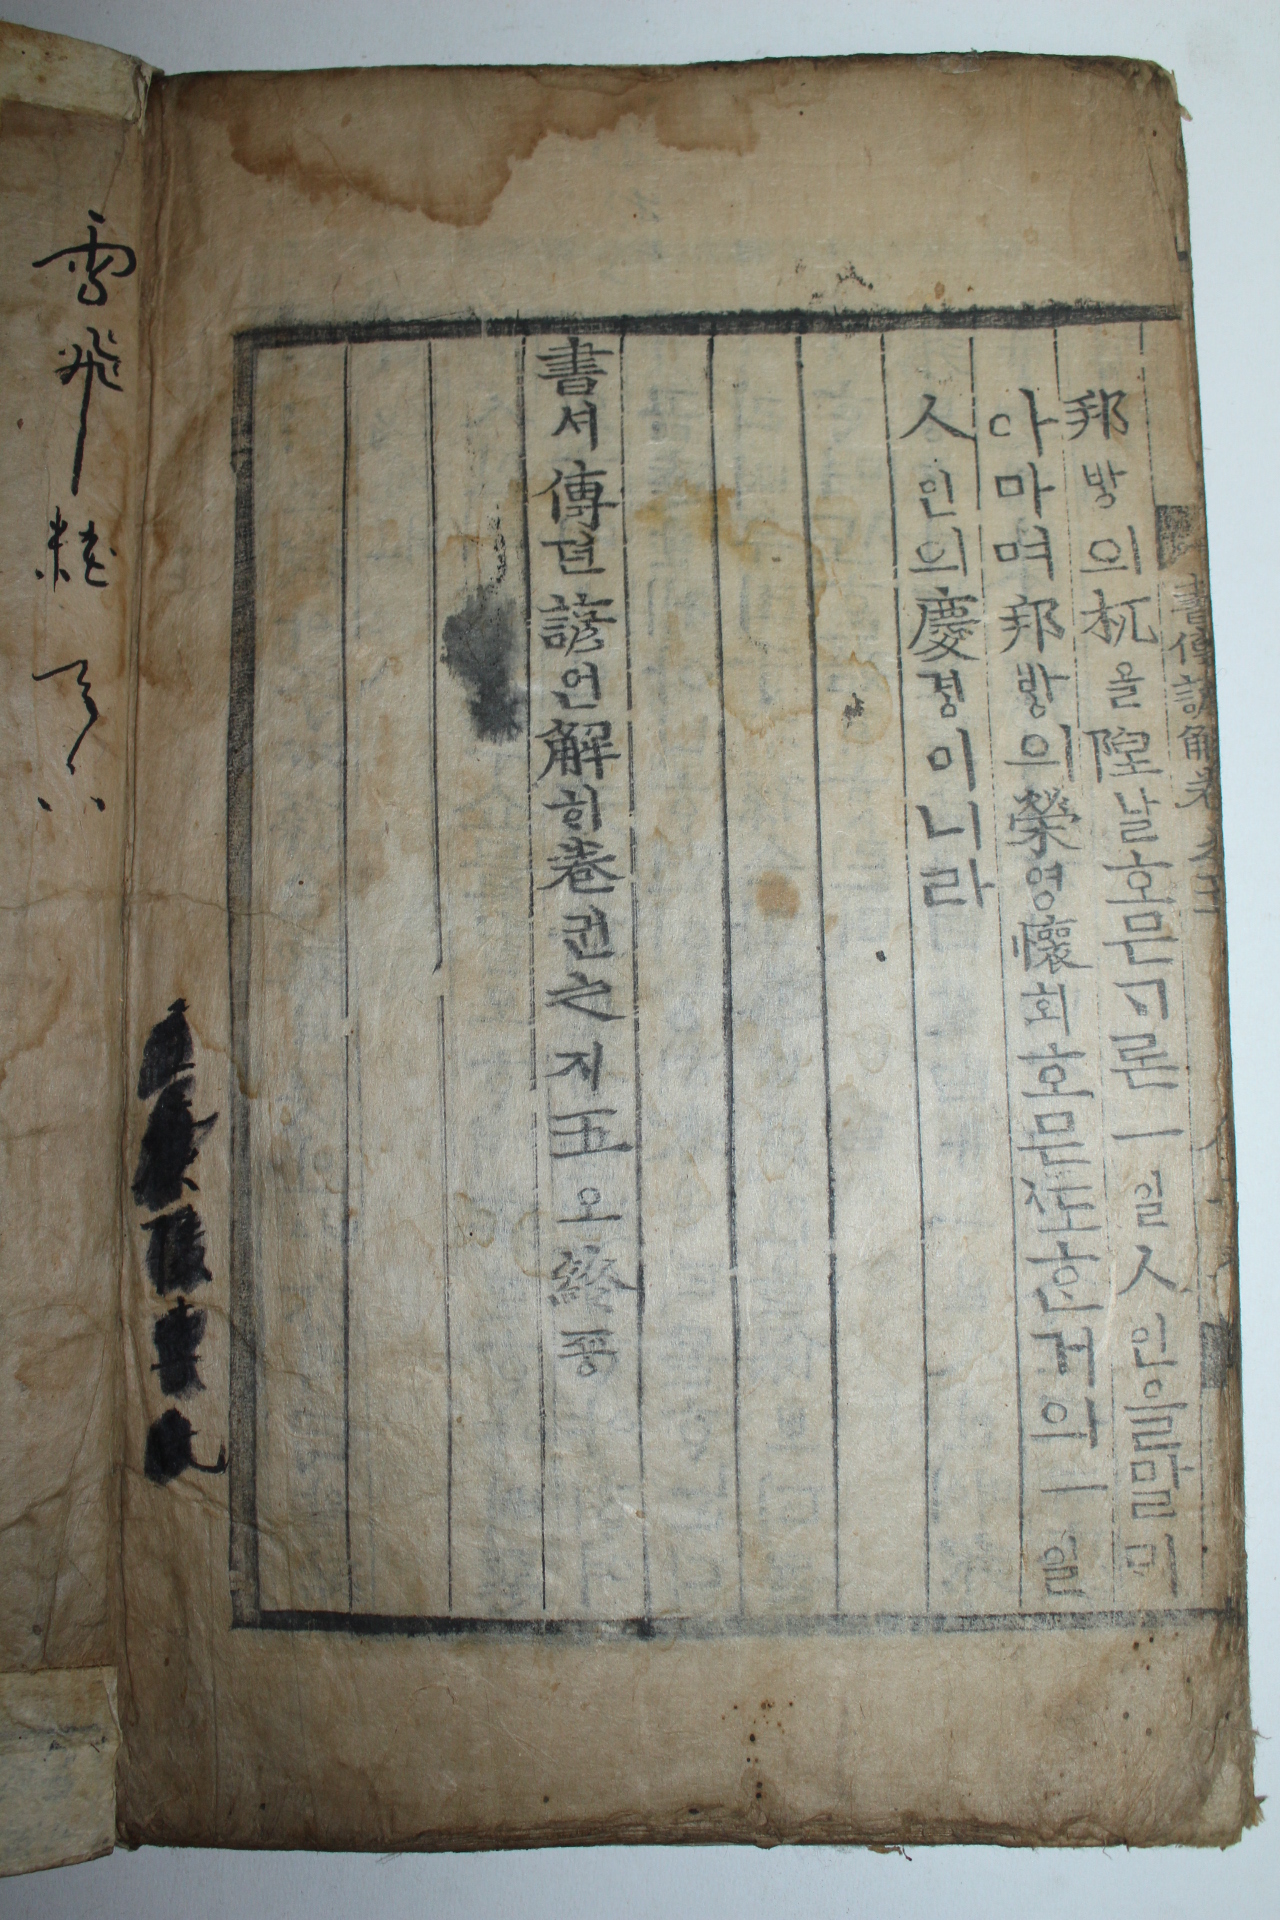 書傳諺解卷之五
邦방의杌올隉날호믄ᄀᆞ론一일人인을말미
아마며邦방의榮영懷회호믄ᄯᅩᄒᆞᆫ거의一일
人인의慶경이니라
書셔傳뎐諺언解ᄒᆡ卷권之지五오終죵
雪飛